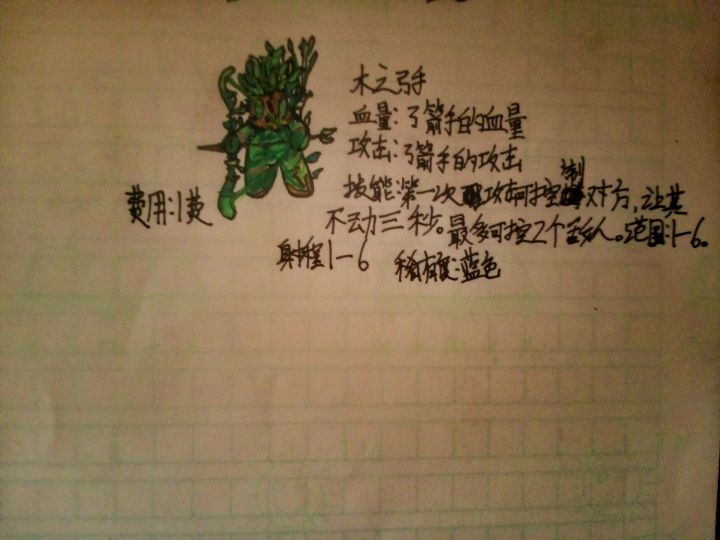 木之弓手
血量:弓箭手的血量
攻击:弓箭手的攻击
技能:第一次攻击可控制对方,让其
不动三秒。最多可控2个敌人。范围:1-6。
费用:1费
射程1-6 稀有度:蓝色